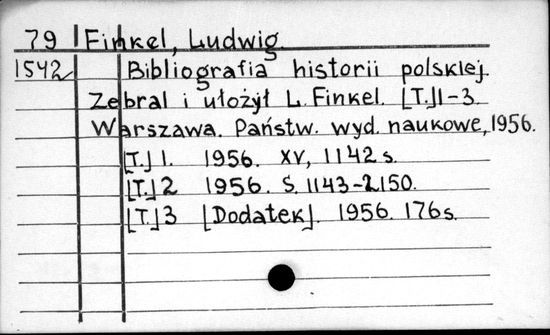 79 Finkel, Ludwig.
1542 Bibliografia historii polskiej.
Zebrał i ułożył L. Finkel. [T.] 1-3.
Warszawa. Państw. wyd. naukowe, 1956.
[T.] 1. 1956. XV, 1142 s.
[T.] 2 1956. S. 1143-2150.
[T.] 3 [Dodatek]. 1956. 176 s.